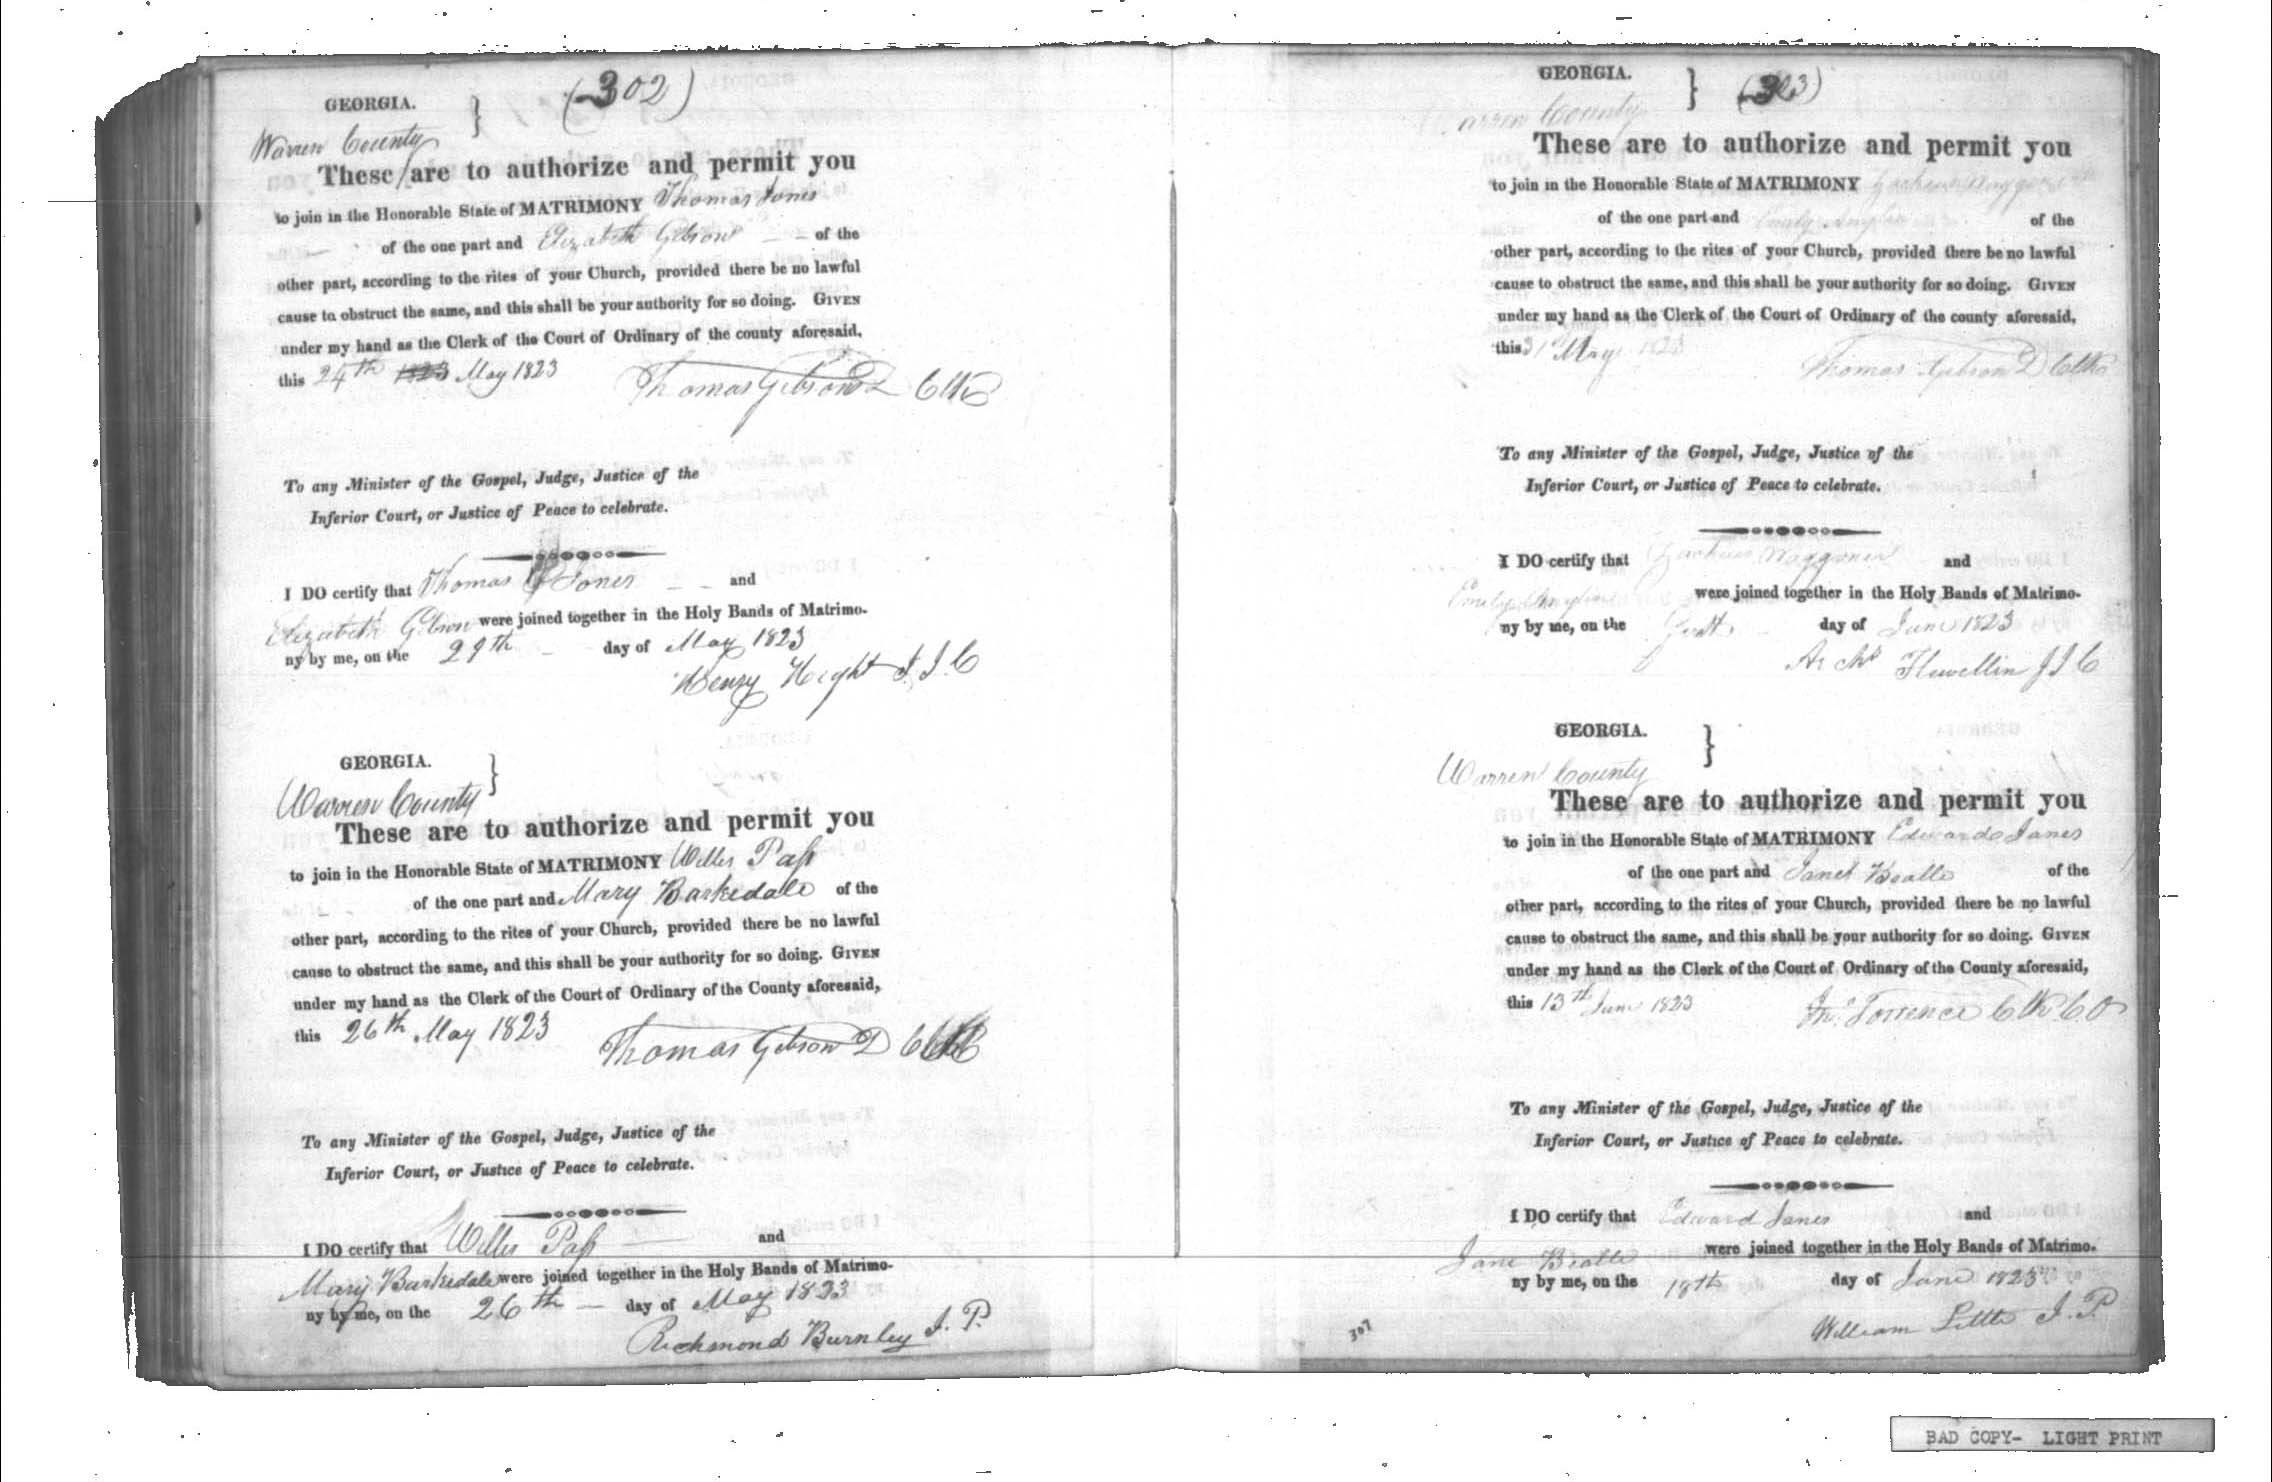 (302)
GEORGIA. }
Warren County
These are to authorize and permit you
to join in the Honorable State of MATRIMONY Thomas Jones
of the one part and Elizabeth Gibson of the
other part, according to the rites of your Church, provided there be no lawful
cause to obstruct the same, and this shall be your authority for so doing. GIVEN
under my hand as the Clerk of the Court of Ordinary of the county aforesaid,
this 24th 1823 May 1823
Thomas Gibson D Clk
To any Minister of the Gospel, Judge, Justice of the
Inferior Court, or Justice of Peace to celebrate.
I DO certify that Thomas Jones and
Elizabeth Gibson were joined together in the Holy Bands of Matrimo-
ny by me, on the 29th day of May 1823
Henry Hight J. I. C
GEORGIA. }
Warren County
These are to authorize and permit you
to join in the Honorable State of MATRIMONY Willis Pass
of the one part and Mary Barksdale of the
other part, according to the rites of your Church, provided there be no lawful
cause to obstruct the same, and this shall be your authority for so doing. GIVEN
under my hand as the Clerk of the Court of Ordinary of the County aforesaid,
this 26th May 1823
Thomas Gibson D
To any Minister of the Gospel, Judge, Justice of the
Inferior Court, or Justice of Peace to celebrate.
I DO certify that Willis Pass and
Mary Barksdale were joined together in the Holy Bands of Matrimo-
ny by me, on the 26th day of May 1823
Richmond Burnley J. P.
GEORGIA. } (303)
Warren County
These are to authorize and permit you
to join in the Honorable State of MATRIMONY
of the one part and Emily of the
other part, according to the rites of your Church, provided there be no lawful
cause to obstruct the same, and this shall be your authority for so doing. GIVEN
under my hand as the Clerk of the Court of Ordinary of the county aforesaid,
this 31st May 1823
Thomas Gibson D Clk
To any Minister of the Gospel, Judge, Justice of the
Inferior Court, or Justice of Peace to celebrate.
I DO certify that Waggoner and
Emily were joined together in the Holy Bands of Matrimo-
ny by me, on the day of June 1823
Archd Flewellin J I C
GEORGIA. }
Warren County
These are to authorize and permit you
to join in the Honorable State of MATRIMONY Edward Janes
of the one part and Janet Bealle of the
other part, according to the rites of your Church, provided there be no lawful
cause to obstruct the same, and this shall be your authority for so doing. GIVEN
under my hand as the Clerk of the Court of Ordinary of the County aforesaid,
this 13th June 1823 Jno. Torrence Clk. C. O
To any Minister of the Gospel, Judge, Justice of the
Inferior Court, or Justice of Peace to celebrate.
I DO certify that Edward Janes and
Jane Bealle were joined together in the Holy Bands of Matrimo-
ny by me, on the 18th day of June 1823
William Little J. P.
307
BAD COPY- LIGHT PRINT